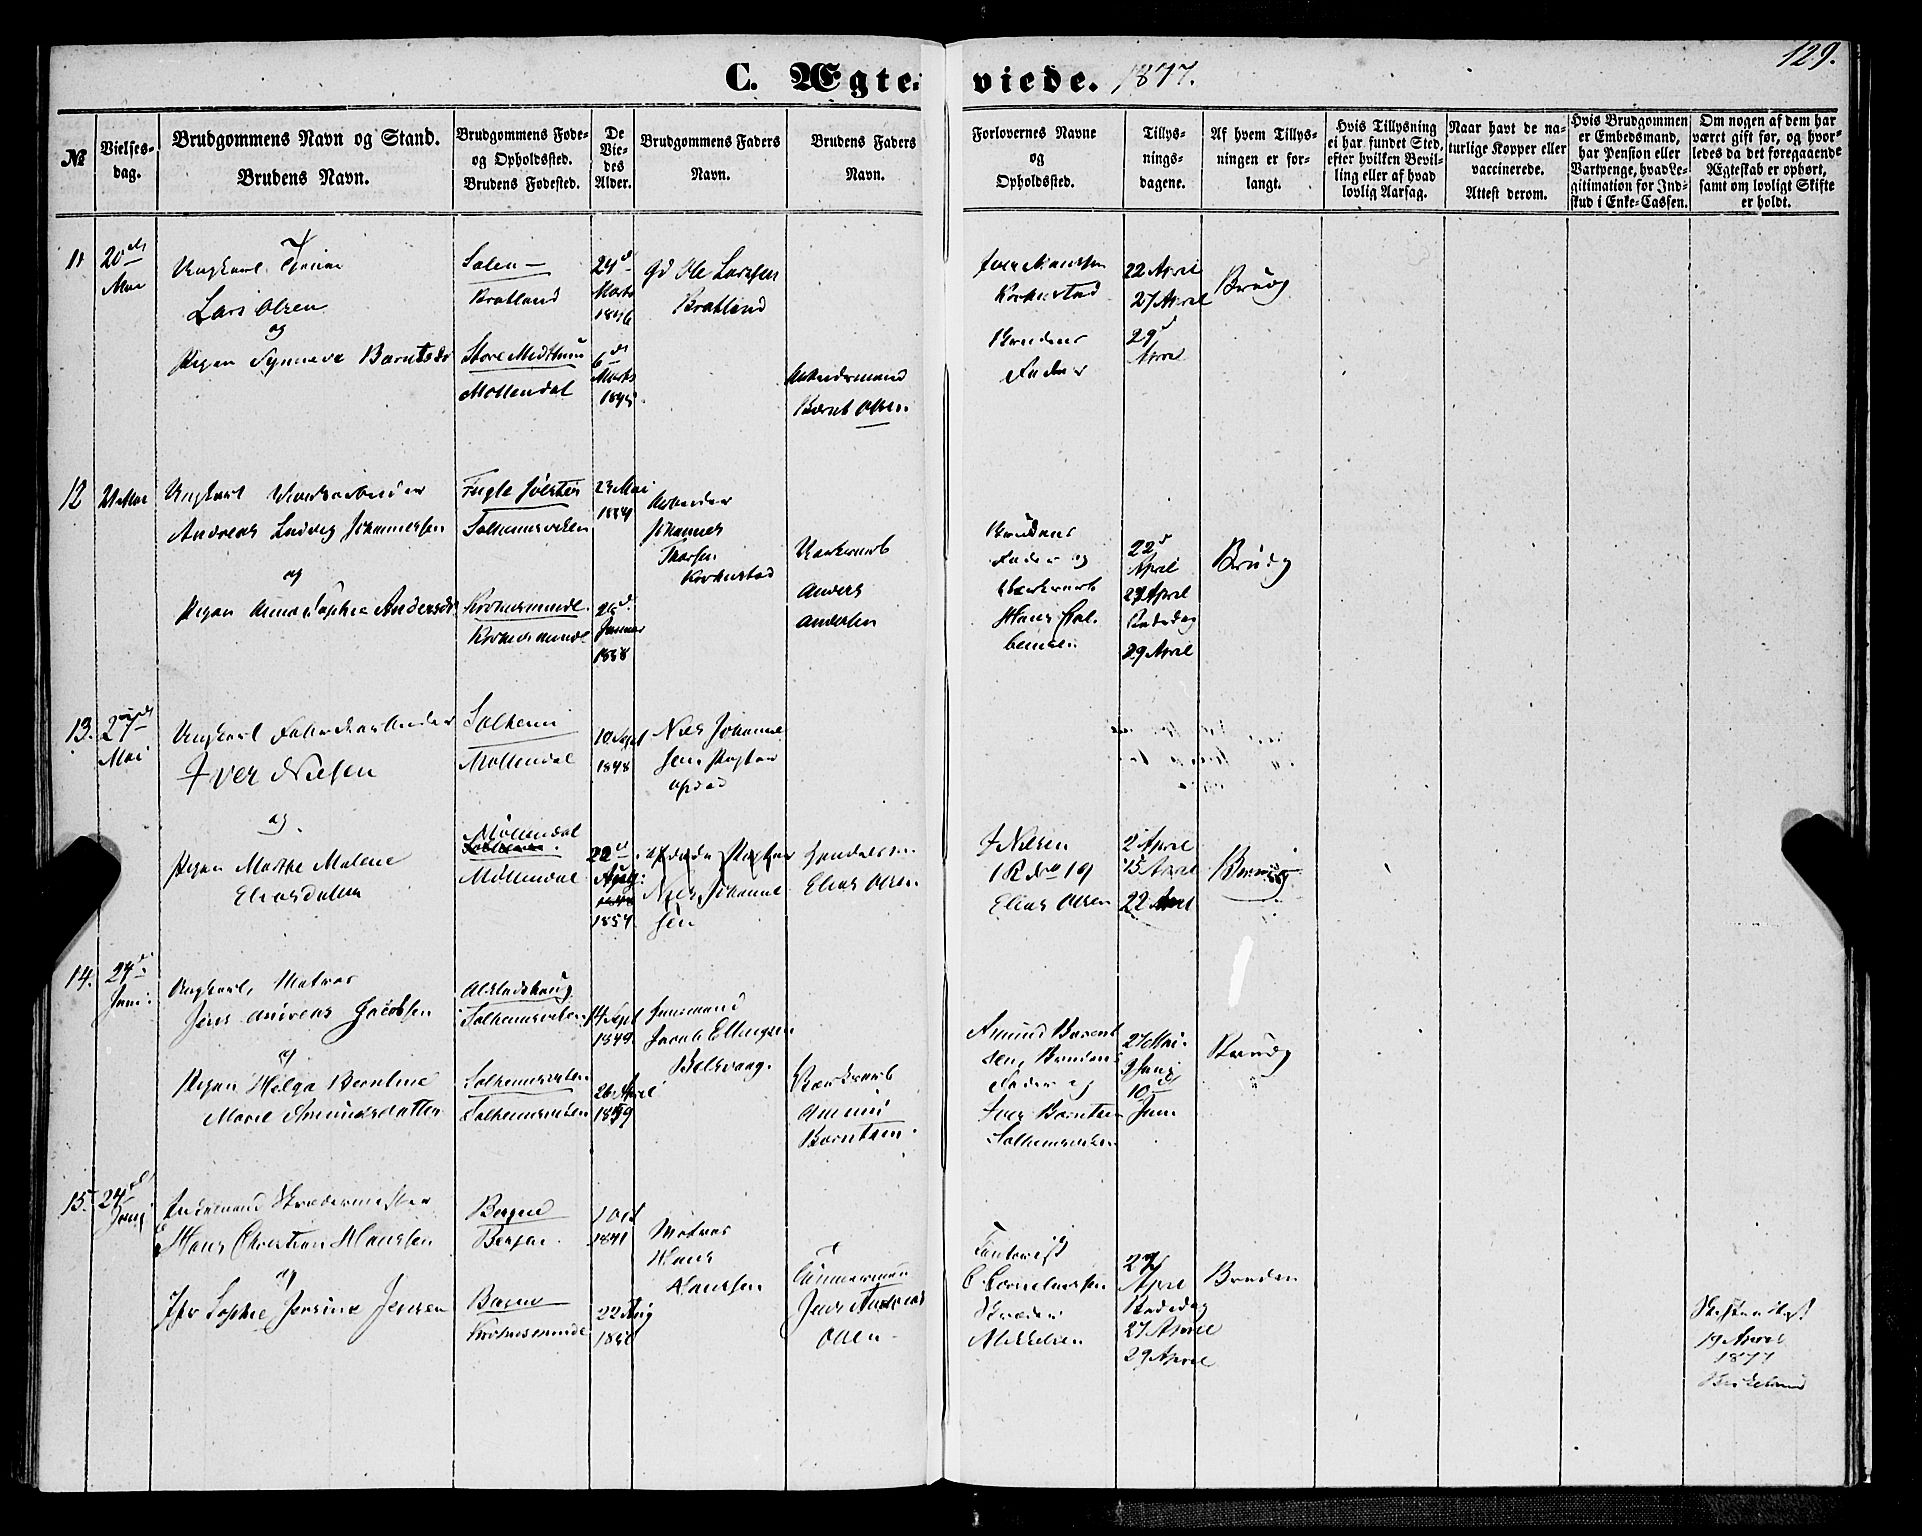 129.
C. Ægteviede. 1877.
№
Vielsesdag.
Brudgommens Navn og Stand.
Brudens Navn.
Brudgommens Føde-
og Opholdssted.
Brudens Fødested.
De
Vie-
des
Alder.
Brudgommens Faders
Navn.
Brudens Faders
Navn.
Forlovernes Navne
og
Opholdssted.
Tillys-
nings-
dagene.
Af hvem Tillys-
ningen er for-
langt.
Hvis Tillysning
ei har fundet Sted,
efter hvilken Bevil-
ling eller af hvad
lovlig Aarsag.
Naar havt de na-
turlige Kopper eller
vaccinerede.
Attest derom.
Hvis Brudgommen
er Embedsmand,
har Pension eller
Vartpenge, hvad Le-
gitimation for Ind-
skud i Enke-Cassen.
Om nogen af dem har
været gift før, og hvor-
ledes da det foregaaende
Ægteskab er ophørt,
samt om lovligt Skifte
er holdt.
11
20de
Mai
Ungkarl
Lars Olsen
og
Pigen Synneve Berntsdr
Solen
Bratland
Store Midthun
Møllendal
24d
Marts
1846
6de
Marts
Gd Ole Larssen
Bratland
Arbeidsmand
Bernt Olsen
Kronstad
Brudens
Fader
22 April
27 April
29d
April
Brudg
12
Mai
Ungkarl
Andreas Ludvig Johannessen
og
Pigen Anna Sophie Andersdr
Fugle Jølster
Solheimsviken
Kronesminde
Kronesminde
23 Mai
Januar
Arbeider
Johannes
Kronstad
Anders
Andersen
Brudens
Fader og
Hans
22d
April
27 April
29 April
Brudg
13.
27de
Mai
Ungkarl
Iver Nielsen
og
Pigen Marthe Malene
Eliasdatter
Solheim
Møllendal
Møllendal
Møllendal
10 Sept
1848
22d
Aug:
1854
Niels Johanne
sen
Niels Johanne
sen
Elias Olsen
I Nielsen
Elias Olsen
2 April
15 April
22 April
Brudg
14.
24d
Juni
Ungkarl, Matros
Jens Andreas Jacobsen
og
Pigen Helga Berntine
Marie Amundsdatter
Alstadhaug
Solheimsviken
Solheimsviken
Solheimsviken
14 Sept
1849
26 April
1859
Huusmand
Jacob Ellingsen
Belsvaag.
Amund
Berntsen.
Amund Bernt
sen, Brudens
Fader og
Iver Berntsen
Solheimsviken
27 Mai
3 Juni
10d
Juni
Brudg
15.
24de
Juni
Enkemand Skrædermester
Hans Christian Hanssen
og
Sophie Jensine Jensen
Bergen
Bergen
Bergen
Kronesminde
1 Oct
1841
22 Aug
Matros
Hans
Hanssen
Tømmermand
Jens Andreas
Olsen
C Corneliussen
Skræder
Mikkelsen
27
April
27 April
29 April
Bruden
Skifteattest
19 April
1877